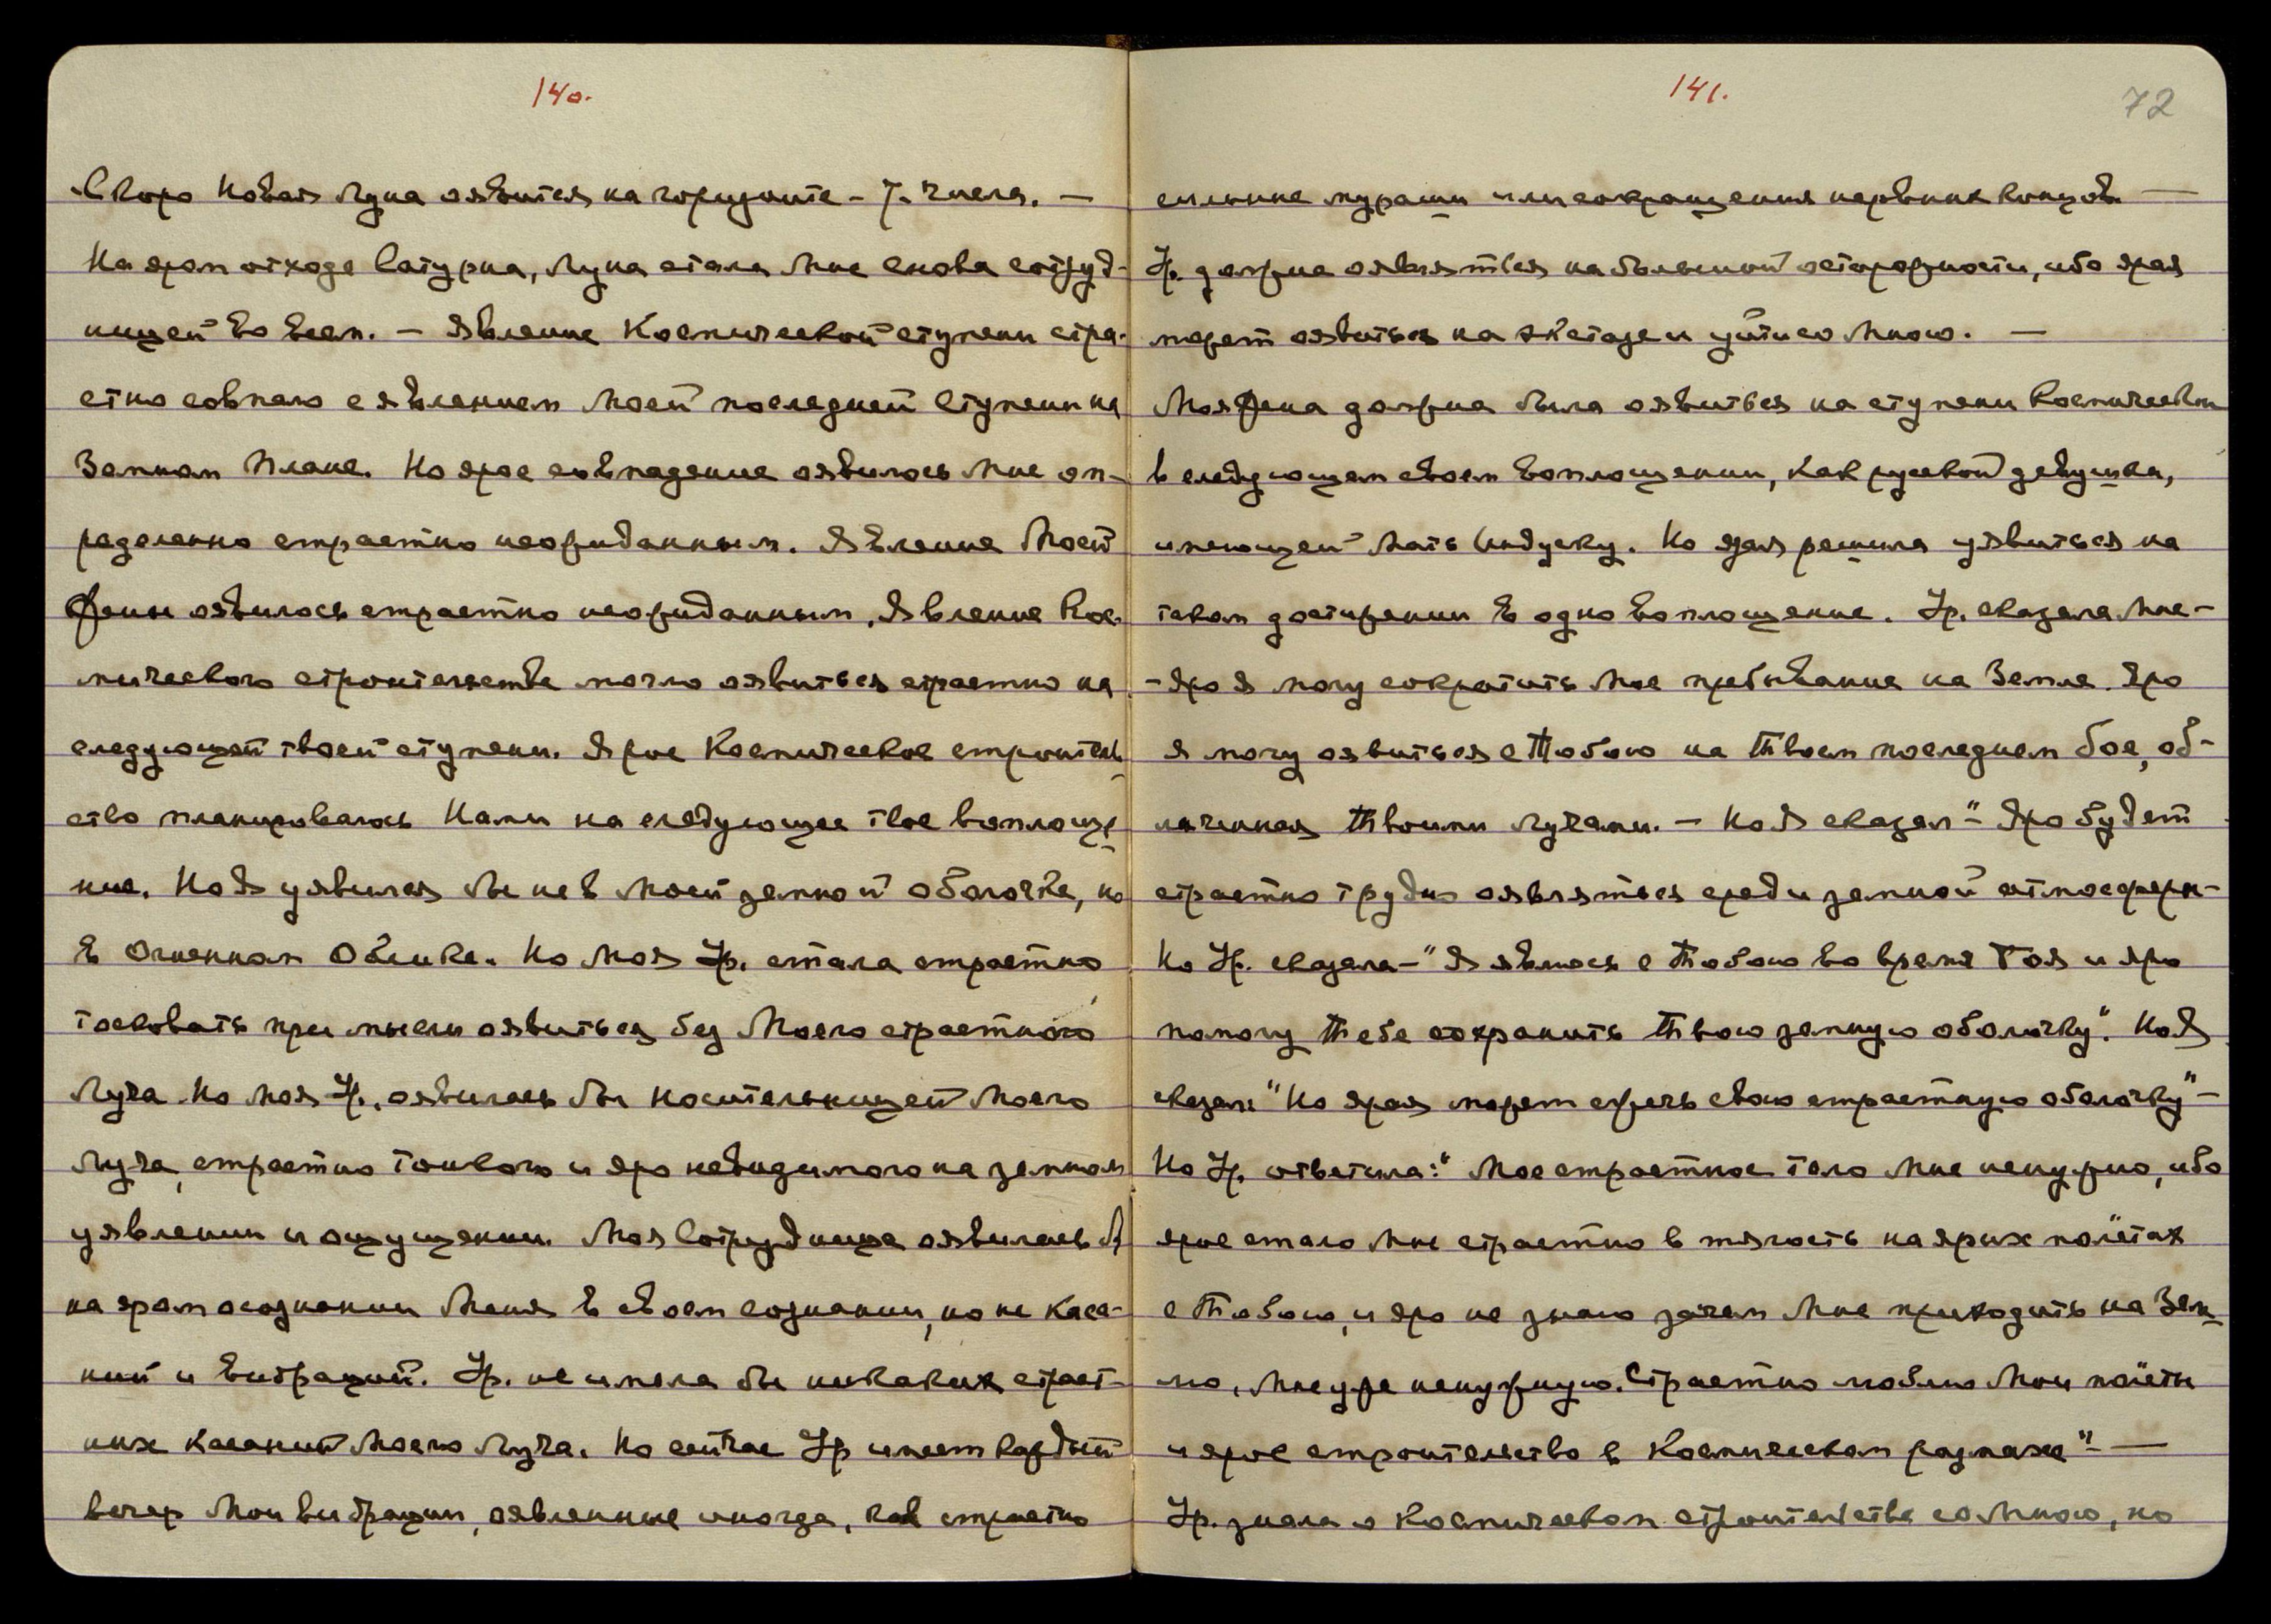 140.
Скоро Новая Луна оявится на горизонте – 7. числа. —
На яром отходе Сатурна, Луна стала Мне снова сотруд-
ницей во всем. – Явление Космической ступени стра-
стно совпало с явлением Моей последней Ступени на
Земном Плане. Но ярое совпадение оявилось Мне оп-
ределенно страстно неожиданным. Явление Моей
Жены оявилось страстно неожиданным. Явление Кос-
мического строительства могло оявиться страстно на
следующей твоей ступени. Ярое Космическое строитель-
ство планировалось Нами на следующее твое воплоще-
ние. Но Я уявился бы не в Моей земной оболочке, но
в Огненном Облике. Но Моя Ур. стала страстно
тосковать при мысли оявиться без Моего страстного
Луча. Но Моя Ур. оявилась бы носительницей Моего
Луча, страстно тонкого и яро невидимого на земном
уявлении и ощущении. Моя Сотрудница оявилась б
на яром осознании Меня в своем сознании, но не каса-
ний и вибраций. Ур. не имела бы никаких страст-
ных касаний Моего Луча. Но сейчас Ур имеет каждый
вечер Мои вибрации, оявленные иногда, как страстно
141.
72
сильные мураши или сокращения нервных концов —
Ур. должна оявляться на большой осторожности, ибо ярая
может оявиться на экстазе и уйти со Мною. —
Моя Жена должна была оявиться на ступени Космической
в следующем своем воплощении, как русской девушки,
имеющей Мать Индуску. Но ярая решила уявиться на
таком достижении в одно воплощение. Ур. сказала Мне –
– Яро Я могу сократить Мое пребывание на Земле. Яро
Я могу оявиться с Тобою на Твоем последнем бое, об-
леченная Твоими Лучами. – Но Я сказал – "Яро будет
страстно трудно оявляться среди земной атмосферы –
Но Ур. сказала – "Я явлюсь с Тобою во время Боя и яро
помогу Тебе сохранить Твою земную оболочку". Но Я
сказал: "Но ярая может сжечь свою страстную оболочку" –
Но Ур. ответила: "Мое страстное тело Мне не нужно, ибо
ярое стало Мне страстно в тягость на ярых полётах
с Тобою, и яро не знаю зачем Мне приходить на Зем-
лю, Мне уже ненужную. Страстно люблю Мои полёты
и ярое строительство в Космическом размахе" —
Ур. знала о Космическом строительстве со Мною, но